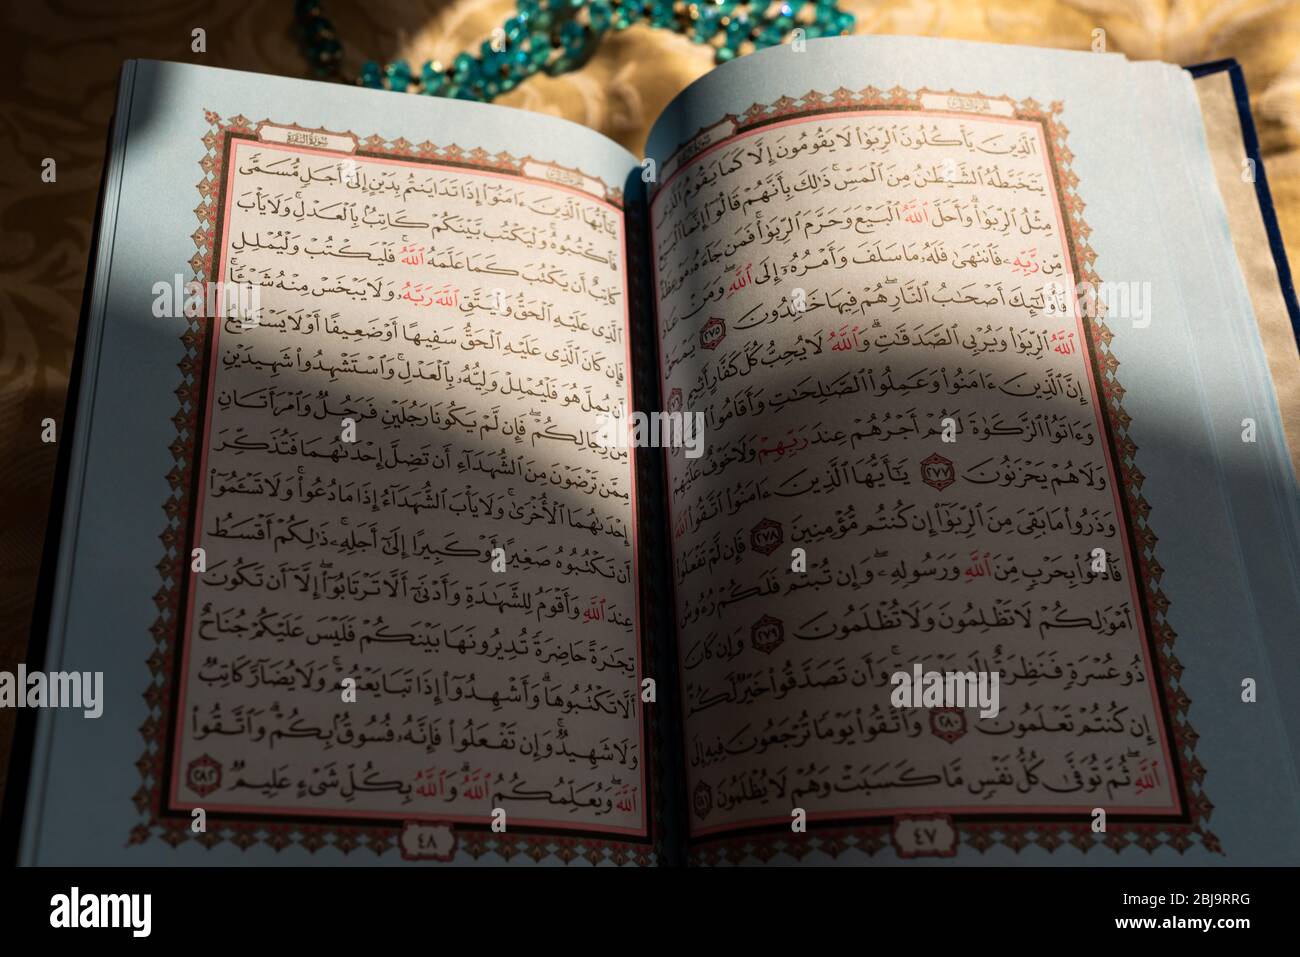 ٱلَّذِينَ يَأْكُلُونَ ٱلرِّبَوٰا۟ لَا يَقُومُونَ إِلَّا كَمَا يَقُومُ ٱلَّذِى
يَتَخَبَّطُهُ ٱلشَّيْطَٰنُ مِنَ ٱلْمَسِّ ۚ ذَٰلِكَ بِأَنَّهُمْ قَالُوٓا۟ إِنَّمَا ٱلْبَيْعُ
مِثْلُ ٱلرِّبَوٰا۟ ۗ وَأَحَلَّ ٱللَّهُ ٱلْبَيْعَ وَحَرَّمَ ٱلرِّبَوٰا۟ ۚ فَمَن جَآءَهُۥ مَوْعِظَةٌ
مِّن رَّبِّهِۦ فَٱنتَهَىٰ فَلَهُۥ مَا سَلَفَ وَأَمْرُهُۥٓ إِلَى ٱللَّهِ ۖ وَمَنْ عَادَ
فَأُو۟لَٰٓئِكَ أَصْحَٰبُ ٱلنَّارِ ۖ هُمْ فِيهَا خَٰلِدُونَ ٢٧٥ يَمْحَقُ
ٱللَّهُ ٱلرِّبَوٰا۟ وَيُرْبِى ٱلصَّدَقَٰتِ ۗ وَٱللَّهُ لَا يُحِبُّ كُلَّ كَفَّارٍ أَثِيمٍ ٢٧٦
إِنَّ ٱلَّذِينَ ءَامَنُوا۟ وَعَمِلُوا۟ ٱلصَّٰلِحَٰتِ وَأَقَامُوا۟ ٱلصَّلَوٰةَ
وَءَاتَوُا۟ ٱلزَّكَوٰةَ لَهُمْ أَجْرُهُمْ عِندَ رَبِّهِمْ وَلَا خَوْفٌ عَلَيْهِمْ
وَلَا هُمْ يَحْزَنُونَ ٢٧٧ يَٰٓأَيُّهَا ٱلَّذِينَ ءَامَنُوا۟ ٱتَّقُوا۟ ٱللَّهَ
وَذَرُوا۟ مَا بَقِىَ مِنَ ٱلرِّبَوٰٓا۟ إِن كُنتُم مُّؤْمِنِينَ ٢٧٨ فَإِن لَّمْ تَفْعَلُوا۟
فَأْذَنُوا۟ بِحَرْبٍ مِّنَ ٱللَّهِ وَرَسُولِهِۦ ۖ وَإِن تُبْتُمْ فَلَكُمْ رُءُوسُ
أَمْوَٰلِكُمْ لَا تَظْلِمُونَ وَلَا تُظْلَمُونَ ٢٧٩ وَإِن كَانَ
ذُو عُسْرَةٍ فَنَظِرَةٌ إِلَىٰ مَيْسَرَةٍ ۚ وَأَن تَصَدَّقُوا۟ خَيْرٌ لَّكُمْ
إِن كُنتُمْ تَعْلَمُونَ ٢٨٠ وَٱتَّقُوا۟ يَوْمًا تُرْجَعُونَ فِيهِ إِلَى
ٱللَّهِ ۖ ثُمَّ تُوَفَّىٰ كُلُّ نَفْسٍ مَّا كَسَبَتْ وَهُمْ لَا يُظْلَمُونَ ٢٨١
٤٧
سورة البقرة
يَٰٓأَيُّهَا ٱلَّذِينَ ءَامَنُوٓا۟ إِذَا تَدَايَنتُم بِدَيْنٍ إِلَىٰٓ أَجَلٍ مُّسَمًّى
فَٱكْتُبُوهُ ۚ وَلْيَكْتُب بَّيْنَكُمْ كَاتِبٌۢ بِٱلْعَدْلِ ۚ وَلَا يَأْبَ
كَاتِبٌ أَن يَكْتُبَ كَمَا عَلَّمَهُ ٱللَّهُ ۚ فَلْيَكْتُبْ وَلْيُمْلِلِ
ٱلَّذِى عَلَيْهِ ٱلْحَقُّ وَلْيَتَّقِ ٱللَّهَ رَبَّهُۥ وَلَا يَبْخَسْ مِنْهُ شَيْـًٔا ۚ
فَإِن كَانَ ٱلَّذِى عَلَيْهِ ٱلْحَقُّ سَفِيهًا أَوْ ضَعِيفًا أَوْ لَا يَسْتَطِيعُ
أَن يُمِلَّ هُوَ فَلْيُمْلِلْ وَلِيُّهُۥ بِٱلْعَدْلِ ۚ وَٱسْتَشْهِدُوا۟ شَهِيدَيْنِ
مِن رِّجَالِكُمْ ۖ فَإِن لَّمْ يَكُونَا رَجُلَيْنِ فَرَجُلٌ وَٱمْرَأَتَانِ
مِمَّن تَرْضَوْنَ مِنَ ٱلشُّهَدَآءِ أَن تَضِلَّ إِحْدَىٰهُمَا فَتُذَكِّرَ
إِحْدَىٰهُمَا ٱلْأُخْرَىٰ ۚ وَلَا يَأْبَ ٱلشُّهَدَآءُ إِذَا مَا دُعُوا۟ ۚ وَلَا تَسْـَٔمُوٓا۟
أَن تَكْتُبُوهُ صَغِيرًا أَوْ كَبِيرًا إِلَىٰٓ أَجَلِهِۦ ۚ ذَٰلِكُمْ أَقْسَطُ
عِندَ ٱللَّهِ وَأَقْوَمُ لِلشَّهَٰدَةِ وَأَدْنَىٰٓ أَلَّا تَرْتَابُوٓا۟ ۖ إِلَّآ أَن تَكُونَ
تِجَٰرَةً حَاضِرَةً تُدِيرُونَهَا بَيْنَكُمْ فَلَيْسَ عَلَيْكُمْ جُنَاحٌ
أَلَّا تَكْتُبُوهَا ۗ وَأَشْهِدُوٓا۟ إِذَا تَبَايَعْتُمْ ۚ وَلَا يُضَآرَّ كَاتِبٌ
وَلَا شَهِيدٌ ۚ وَإِن تَفْعَلُوا۟ فَإِنَّهُۥ فُسُوقٌۢ بِكُمْ ۗ وَٱتَّقُوا۟
ٱللَّهَ ۖ وَيُعَلِّمُكُمُ ٱللَّهُ ۗ وَٱللَّهُ بِكُلِّ شَىْءٍ عَلِيمٌ ٢٨٢
٤٨
alamy
Image ID: 2BJ9RRG
www.alamy.com